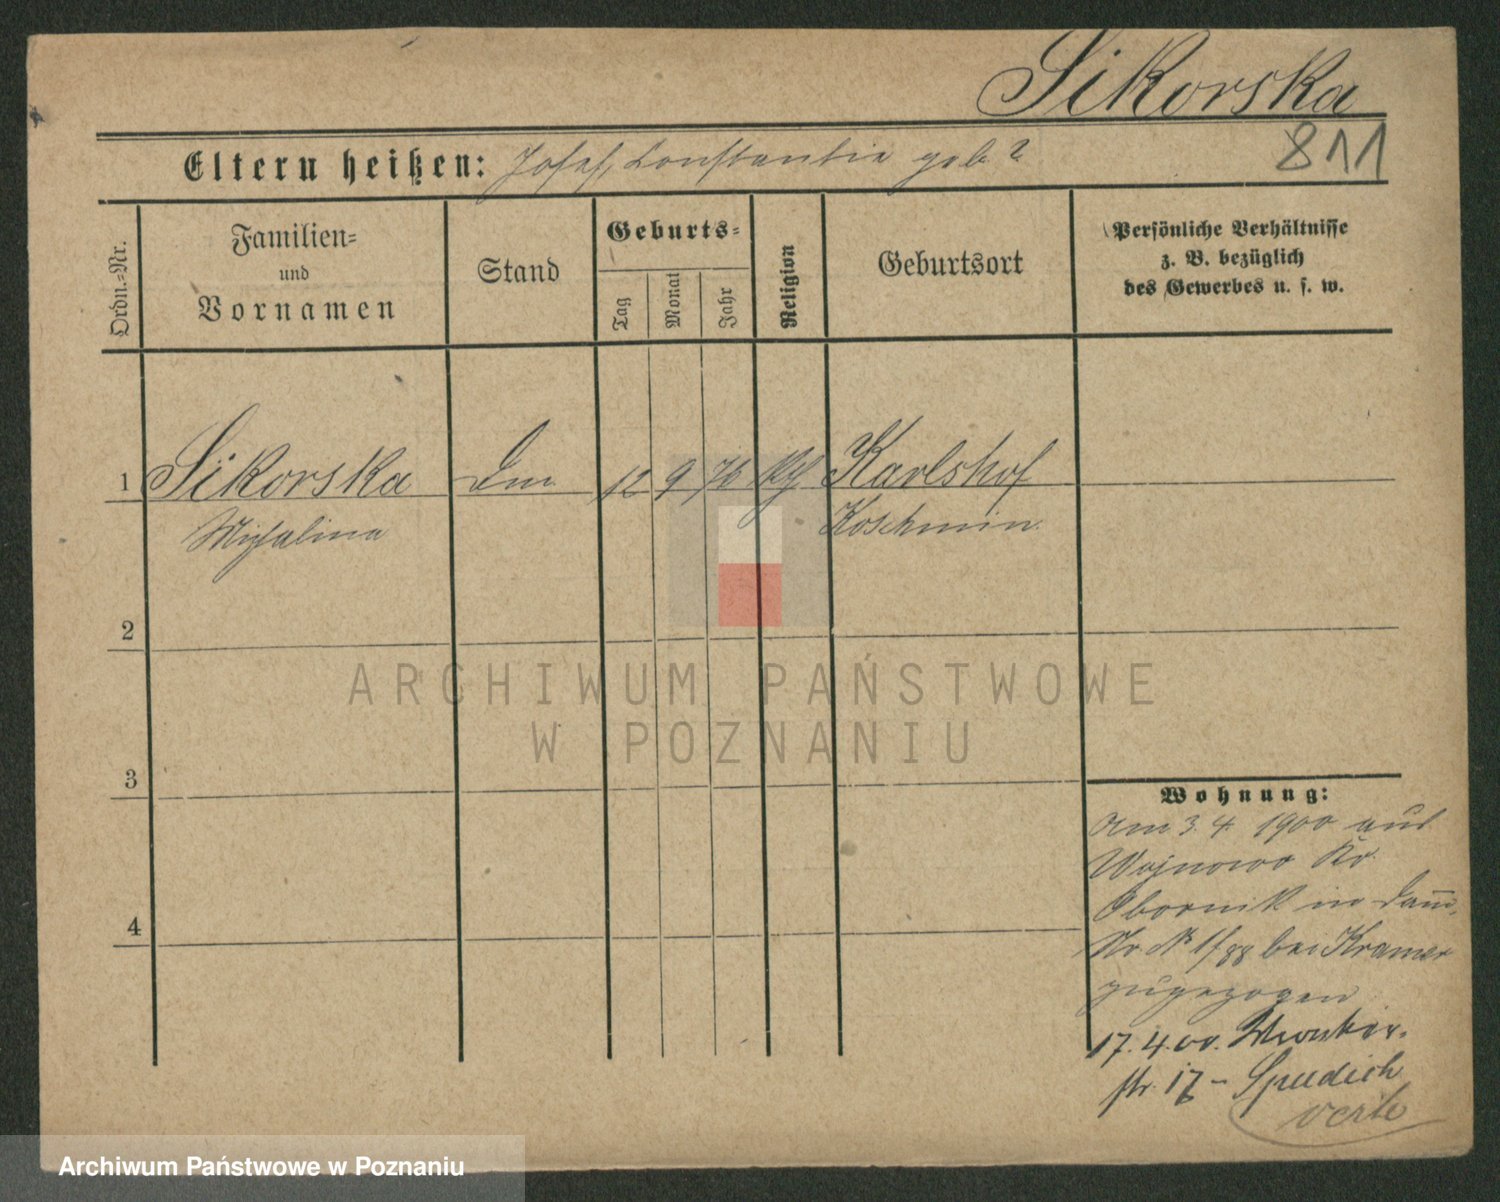 Sikorska
811
Eltern heißen: Josef, Constantia geb ?
Ordn.=Nr.
Familien=
und
Vornamen
Stand
Geburts=
Tag
Monat
Jahr
Religion
Geburtsort
Persönliche Verhältnisse
z. B. bezüglich
des Gewerbes u. s. w.
1 Sikorska 12 9 76 Karlshof
Michalina Koschmin
2
ARCHIWUM PAŃSTWOWE
W POZNANIU
3
Wohnung:
Am 3. 4. 1900 aus
Wojnowo Kr.
Obornik in
bei Kramer
zugezogen
17. 4. 00.
str. 17 –
4
Archiwum Państwowe w Poznaniu